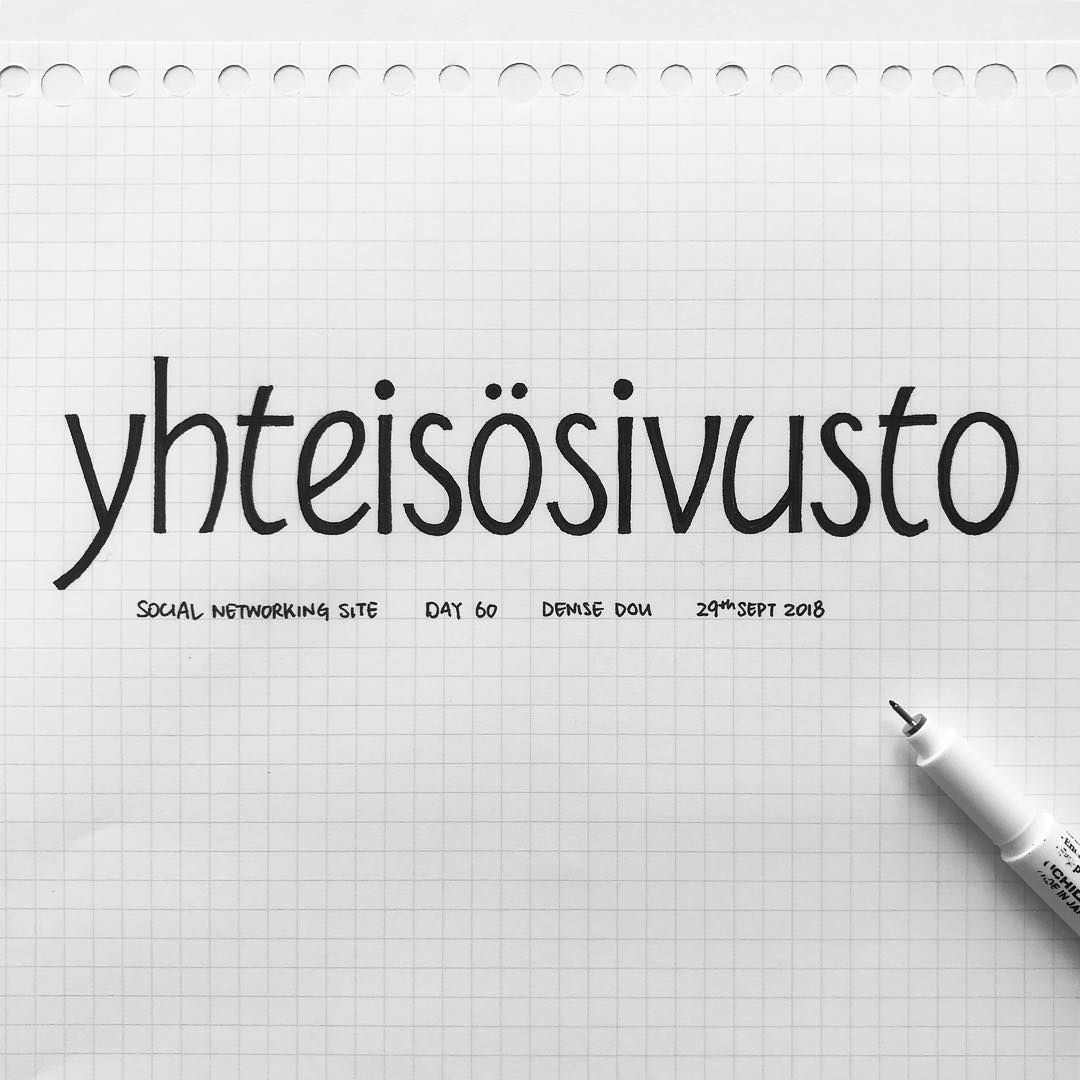 yhteisösivusto
SOCIAL NETWORKING SITE DAY 60 DENISE DOU 29th SEPT 2018
IN JA